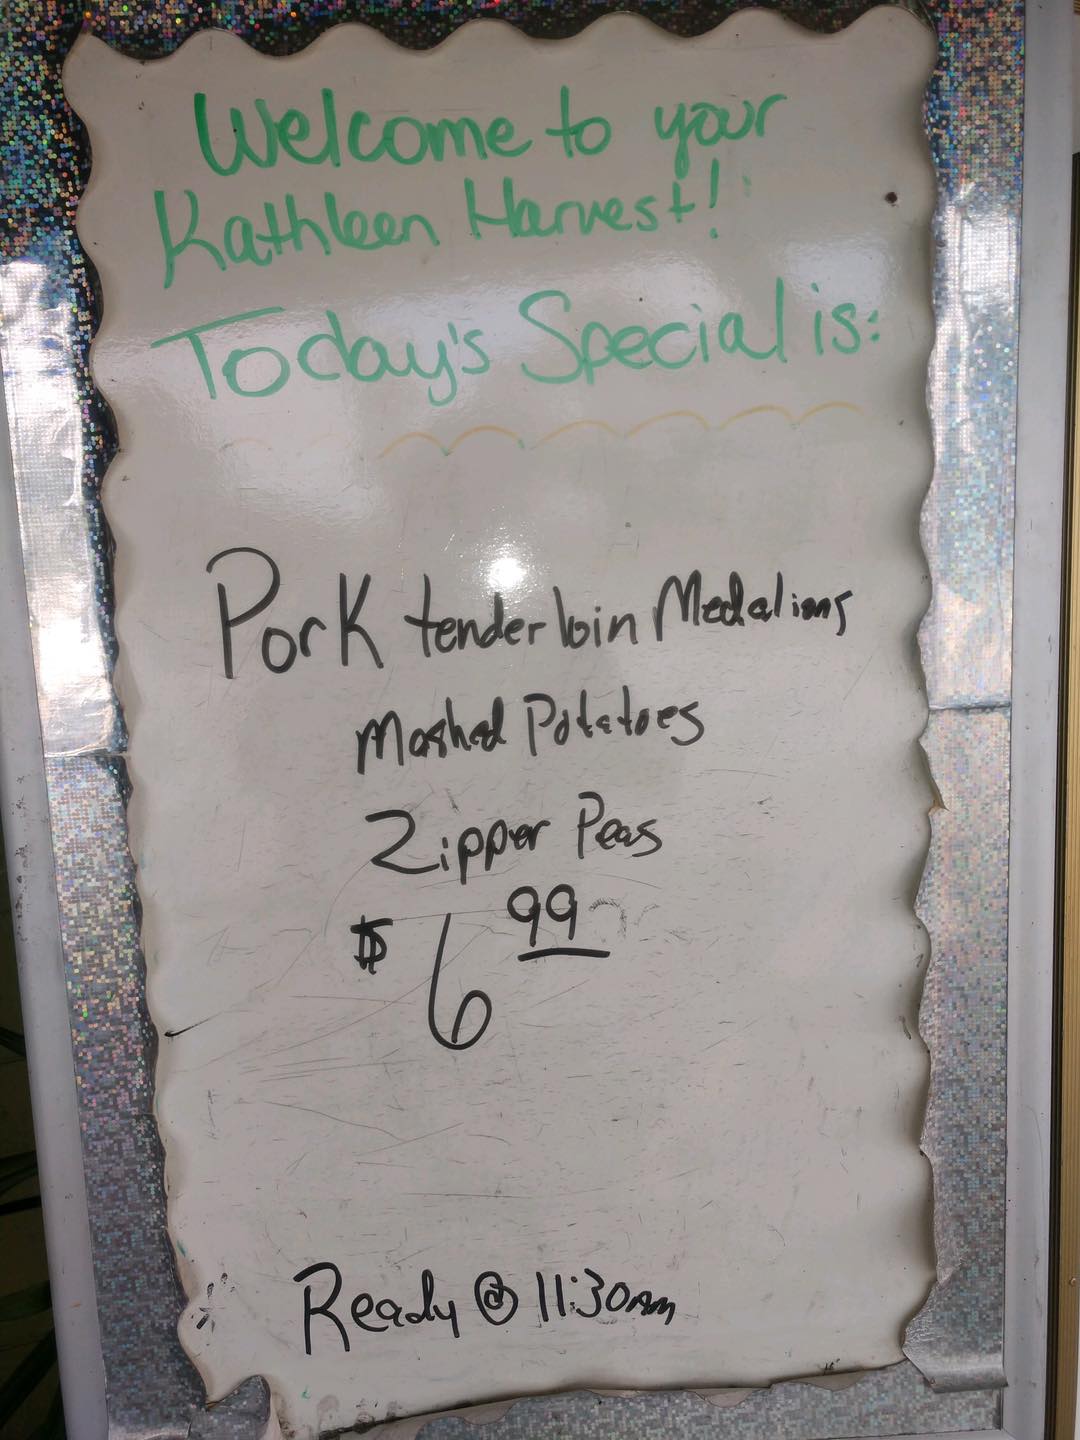 Welcome to your
Kathleen Harvest!
Today's Special is:
Pork tenderloin Medalions
Mashed Potatoes
Zipper Peas
$6 99
Ready @ 11:30am